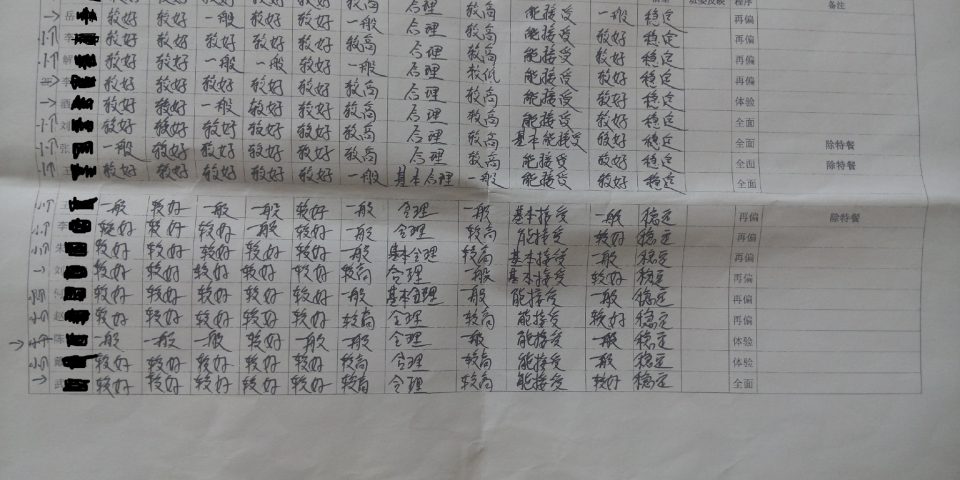 较好 较好 较好 较好 较好 较高 合理 较高 能接受 较好 稳定 班委反映 程序 备注
岳 较好 较好 一般 较好 较好 一般 合理 较高 能接受 一般 稳定 再偏
李 较好 较好 较好 较好 较好 较高 合理 较高 能接受 较好 稳定 再偏
靳 较好 较好 一般 一般 较好 一般 合理 较低 能接受 较好 稳定 再偏
李 较好 较好 较好 较好 较好 较高 合理 较高 能接受 较好 稳定 再偏
酒 较好 较好 一般 较好 较好 较高 合理 较高 能接受 较好 稳定 体验
刘 较好 较好 较好 较好 较好 较高 合理 较高 基本能接受 较好 稳定 全面
张 一般 较好 较好 较好 较好 较高 合理 较高 能接受 较好 稳定 全面 除特餐
王 较好 较好 较好 较好 较好 一般 基本合理 一般 能接受 较好 稳定 全面 除特餐
全面
王 一般 较好 一般 一般 较好 一般 合理 一般 基本接受 一般 稳定 再偏 除特餐
李 较好 较好 较好 一般 较好 一般 合理 较高 能接受 较好 稳定 再偏
朱 较好 较好 较好 较好 较好 一般 基本合理 较高 基本接受 一般 稳定 再偏
刘 较好 较好 较好 较好 较好 较高 合理 一般 基本接受 较好 稳定 再偏
较好 较好 较好 较好 较好 一般 基本合理 一般 能接受 一般 稳定 再偏
赵 较好 较好 较好 较好 较好 较高 合理 较高 能接受 较好 稳定 再偏
陈 一般 一般 一般 较好 一般 一般 合理 一般 能接受 一般 稳定 体验
戴 较好 较好 较好 较好 较好 较高 合理 较高 能接受 一般 稳定 体验
武 较好 较好 较好 较好 较好 较高 合理 较高 能接受 较好 稳定 全面